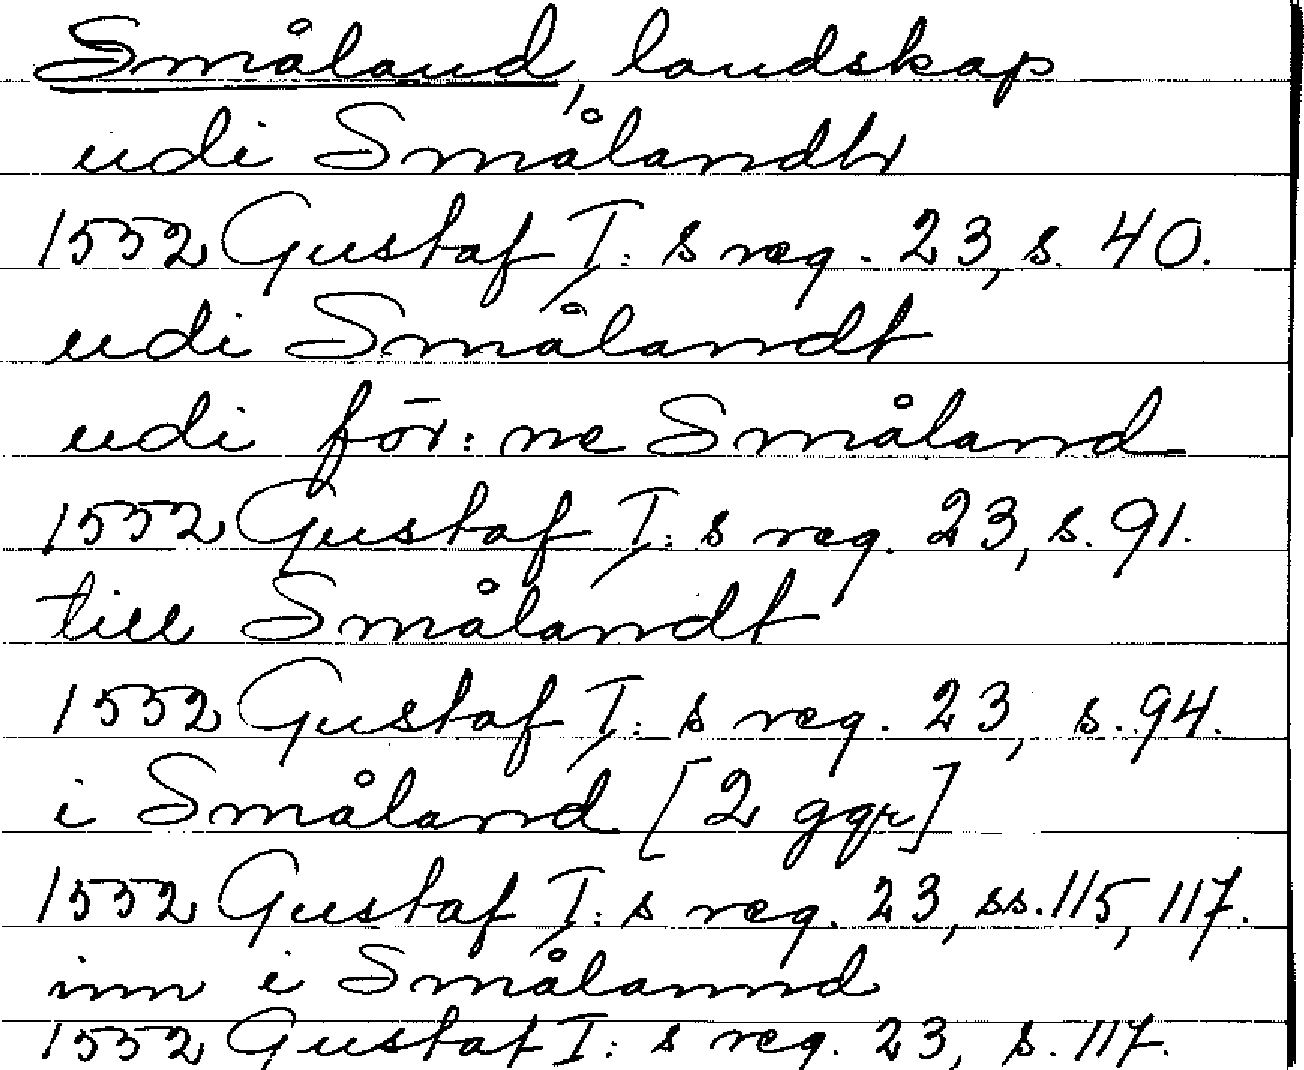 Småland, landskap
udi Smålandh
1552 Gustaf I:s reg. 23, s. 40.
udi Smålandt
udi för:ne Småland
1552 Gustaf I:s reg. 23, s. 91.
till Smålandt
1552 Gustaf I:s reg. 23, s. 94.
i Småland [2 ggr]
1552 Gustaf I:s reg. 23, ss. 115, 117.
inn i Smålannd
1552 Gustaf I:s reg. 23, s. 117.